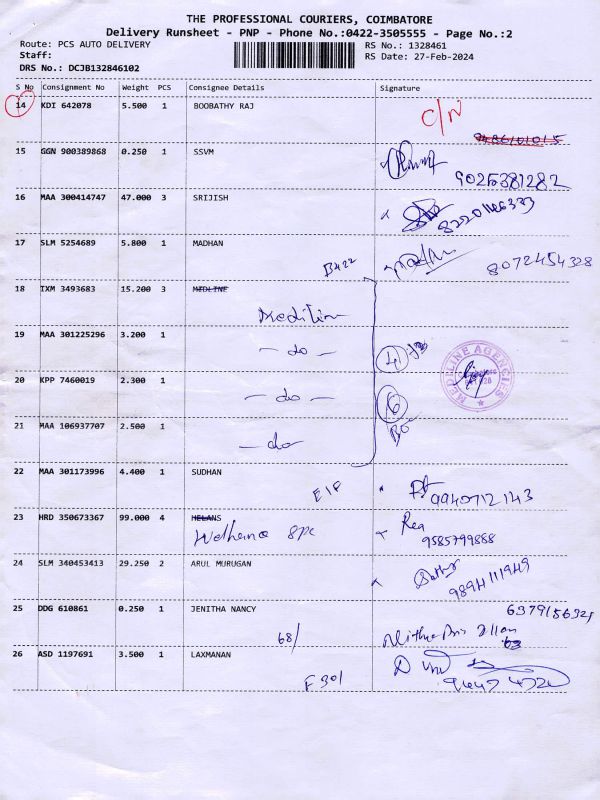 THE PROFESSIONAL COURIERS, COIMBATORE
Delivery Runsheet - PNP - Phone No.:0422-3505555 - Page No.:2
Route: PCS AUTO DELIVERY RS No.: 1328461
Staff: RS Date: 27-Feb-2024
DRS No.: DCJB132846102
S No Consignment No Weight PCS Consignee Details Signature
14 KDI 642078 5.500 1 BOOBATHY RAJ C/N
15 GGN 900389868 0.250 1 SSVM
9025381282
16 MAA 300414747 47.000 3 SRIJISH
17 SLM 5254689 5.800 1 MADHAN
8072454328
B422
18 IXM 3493683 15.200 3 MEDLINE
19 MAA 301225296 3.200 1
- do -
20 KPP 7460019 2.300 1
- do -
MEDELINE AGENCIES
6
21 MAA 106937707 2.500 1
- do
22 MAA 301173996 4.400 1 SUDHAN
9940712143
23 HRD 350673367 99.000 4 MELANS
9585799888
24 SLM 340453413 29.250 2 ARUL MURUGAN
9894111949
25 DDG 610861 0.250 1 JENITHA NANCY
68/
26 ASD 1197691 3.500 1 LAXMANAN
F301